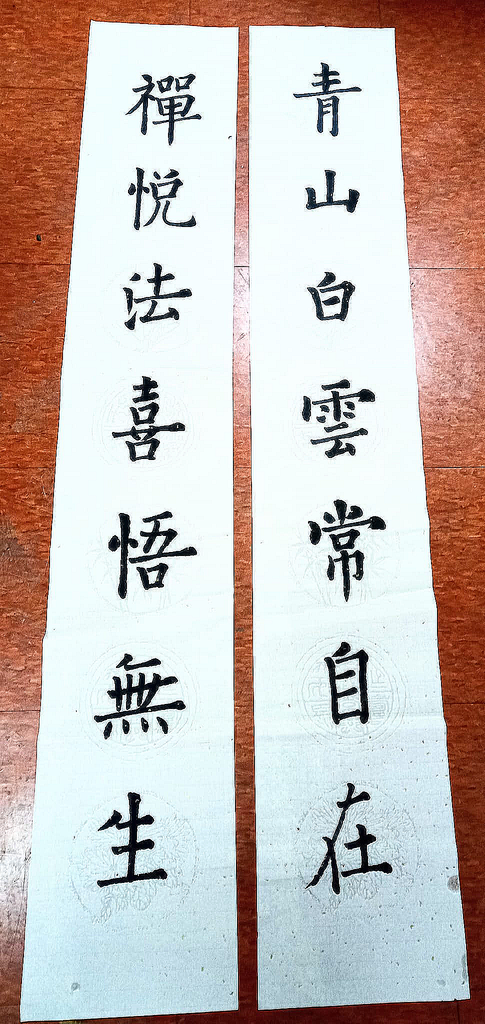 青山白雲常自在
禪悅法喜悟無生